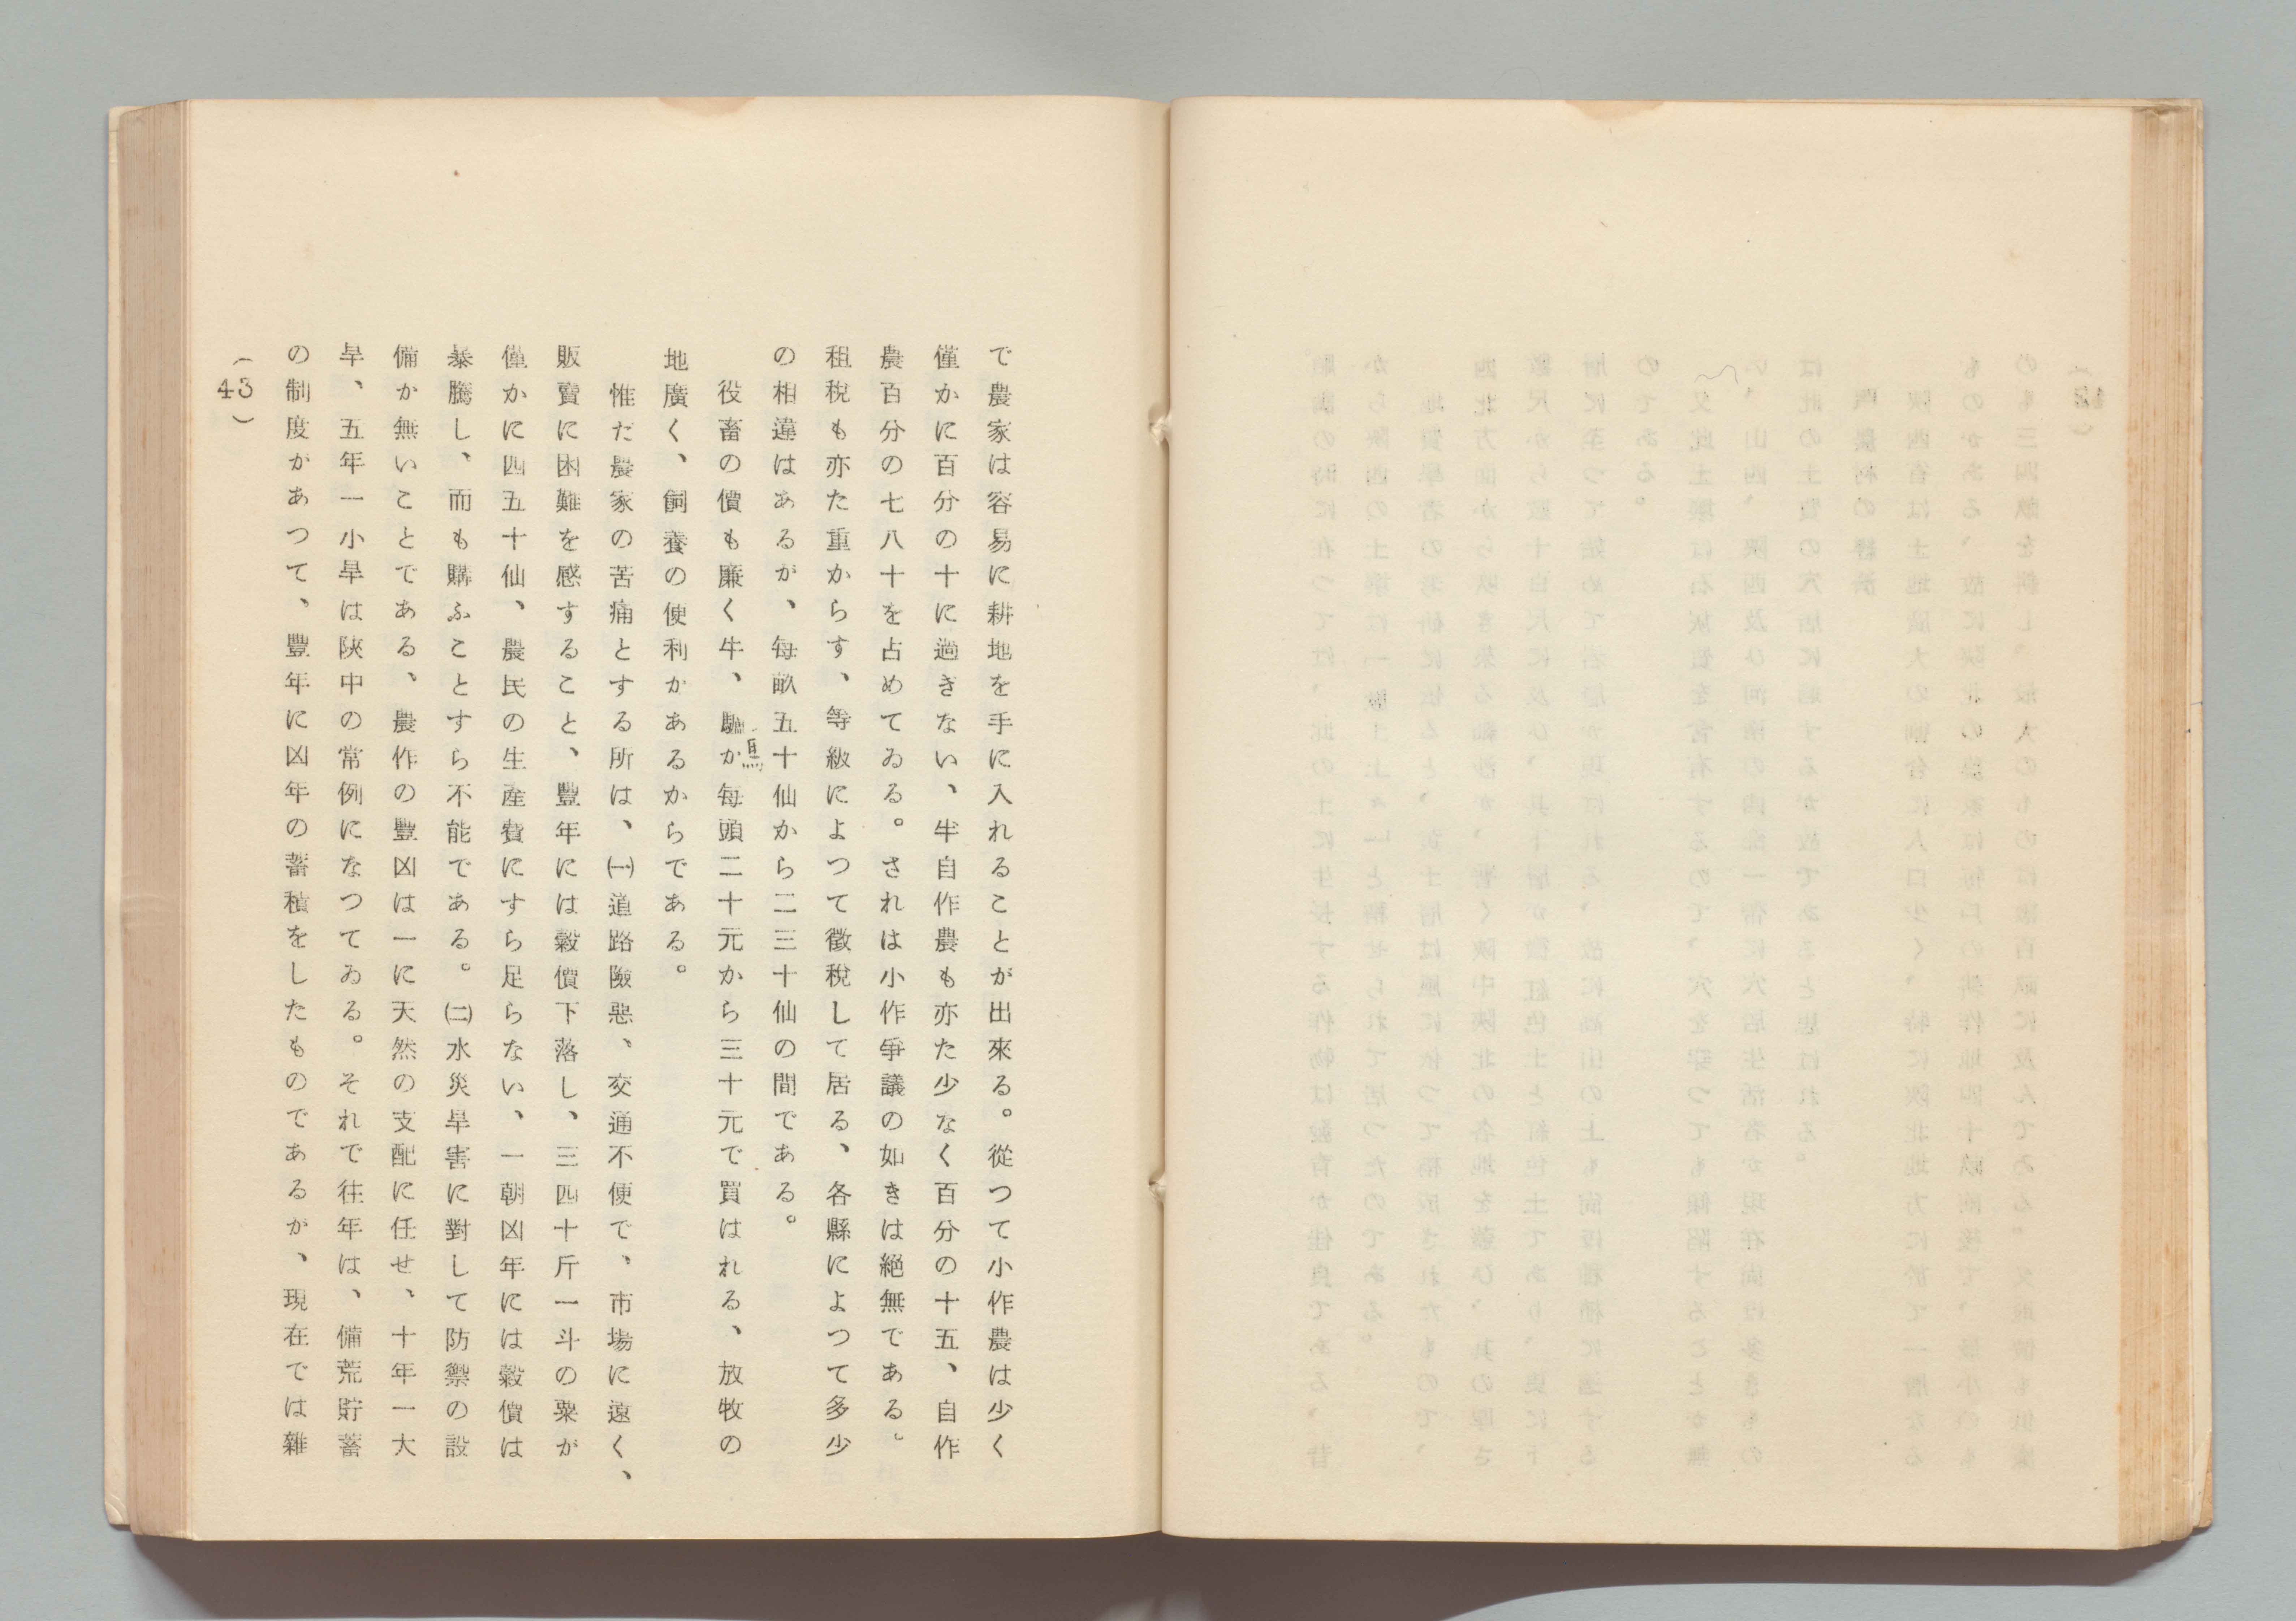 で農家は容易に耕地を手に入れることが出來る。從つて小作農は少く
僅かに百分の十に過ぎない、半自作農も亦た少なく百分の十五、自作
農百分の七八十を占めてゐる。されは小作爭議の如きは絕無である。
租稅も亦た重からす、等級によつて徵稅して居る、各縣によつて多少
の相違はあるが、每畝五十仙から二三十仙の間である。
役畜の價も廉く牛、驢か每頭二十元から三十元で買はれる、放牧の
馬
地廣く、飼養の便利かあるからである。
惟だ農家の苦痛とする所は、㈠道路險惡、交通不便で、市場に遠く、
販賣に困難を感すること、豐年には穀價下落し、三四十斤一斗の粟が
僅かに四五十仙、農民の生產費にすら足らない、一朝凶年には穀價は
暴騰し、而も購ふことすら不能である。㈡水災旱害に對して防禦の設
備か無いことである、農作の豐凶は一に天然の支配に任せ、十年一大
旱、五年一小旱は陝中の常例になつてゐる。それで往年は、備荒貯蓄
の制度があつて、豐年に凶年の蓄積をしたものであるが、現在では雜
(43)